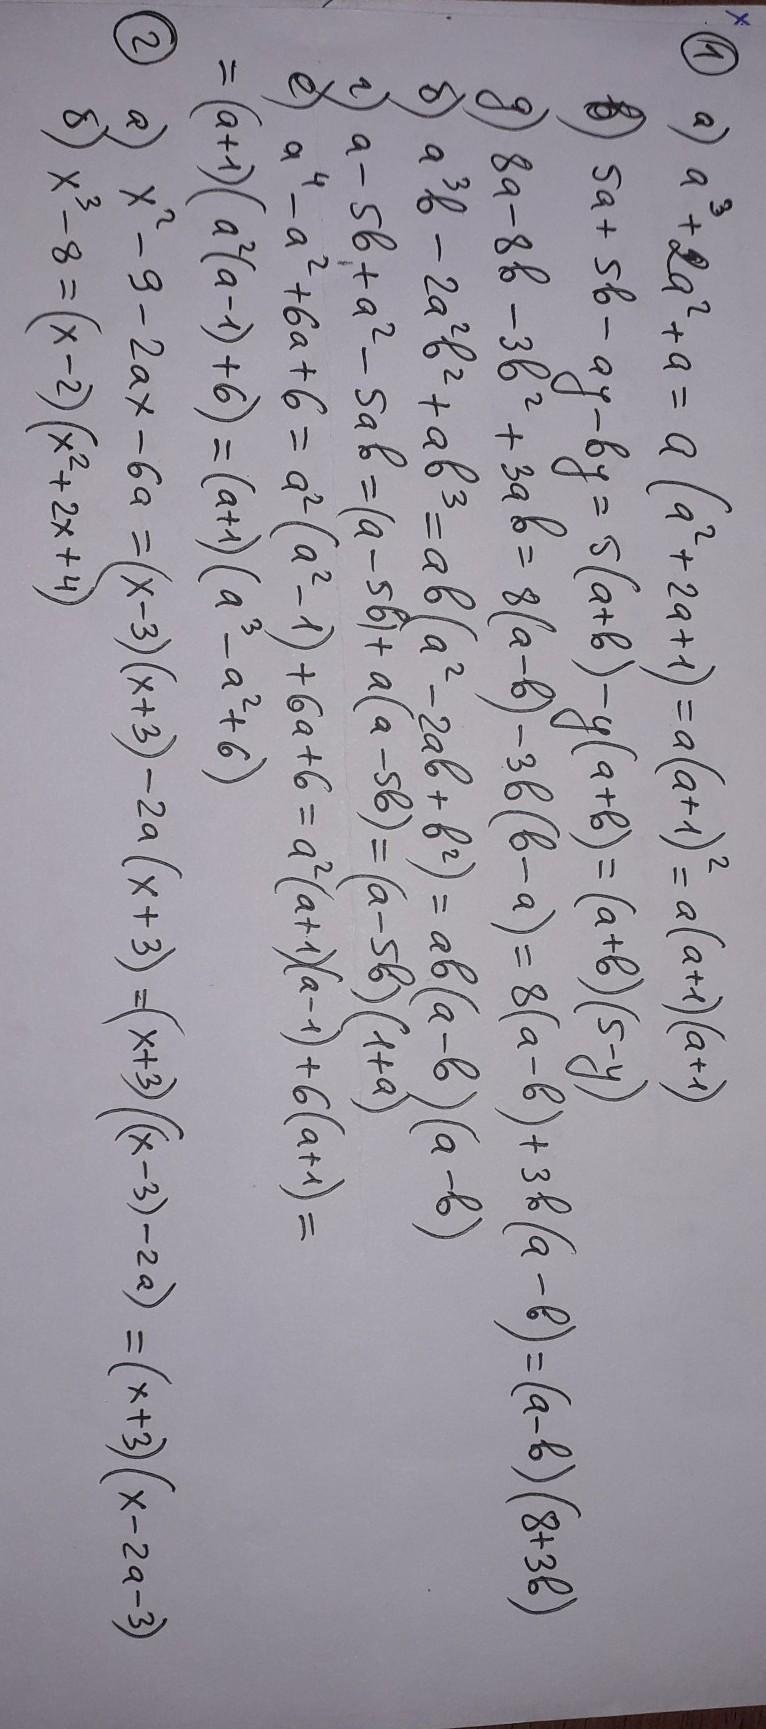 x
① а) a³ + 2a² + a = a(a² + 2a + 1) = a(a+1)² = a(a+1)(a+1)
в) 5a + 5b − ay − by = 5(a+b) − y(a+b) = (a+b)(5−y)
д) 8a − 8b − 3b² + 3ab = 8(a−b) − 3b(b−a) = 8(a−b) + 3b(a−b) = (a−b)(8+3b)
б) a³b − 2a²b² + ab³ = ab(a² − 2ab + b²) = ab(a−b)(a−b)
г) a − 5b + a² − 5ab = (a−5b) + a(a−5b) = (a−5b)(1+a)
е) a⁴ − a² + 6a + 6 = a²(a²−1) + 6a + 6 = a²(a+1)(a−1) + 6(a+1) =
= (a+1)(a²(a−1)+6) = (a+1)(a³ − a² + 6)
② а) x² − 9 − 2ax − 6a = (x−3)(x+3) − 2a(x+3) = (x+3)((x−3)−2a) = (x+3)(x−2a−3)
б) x³ − 8 = (x−2)(x² + 2x + 4)